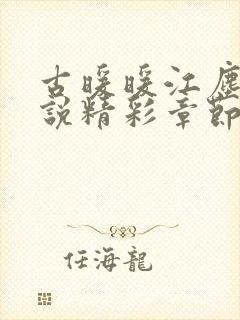 古暖暖江塵
說精彩章節
任海龍